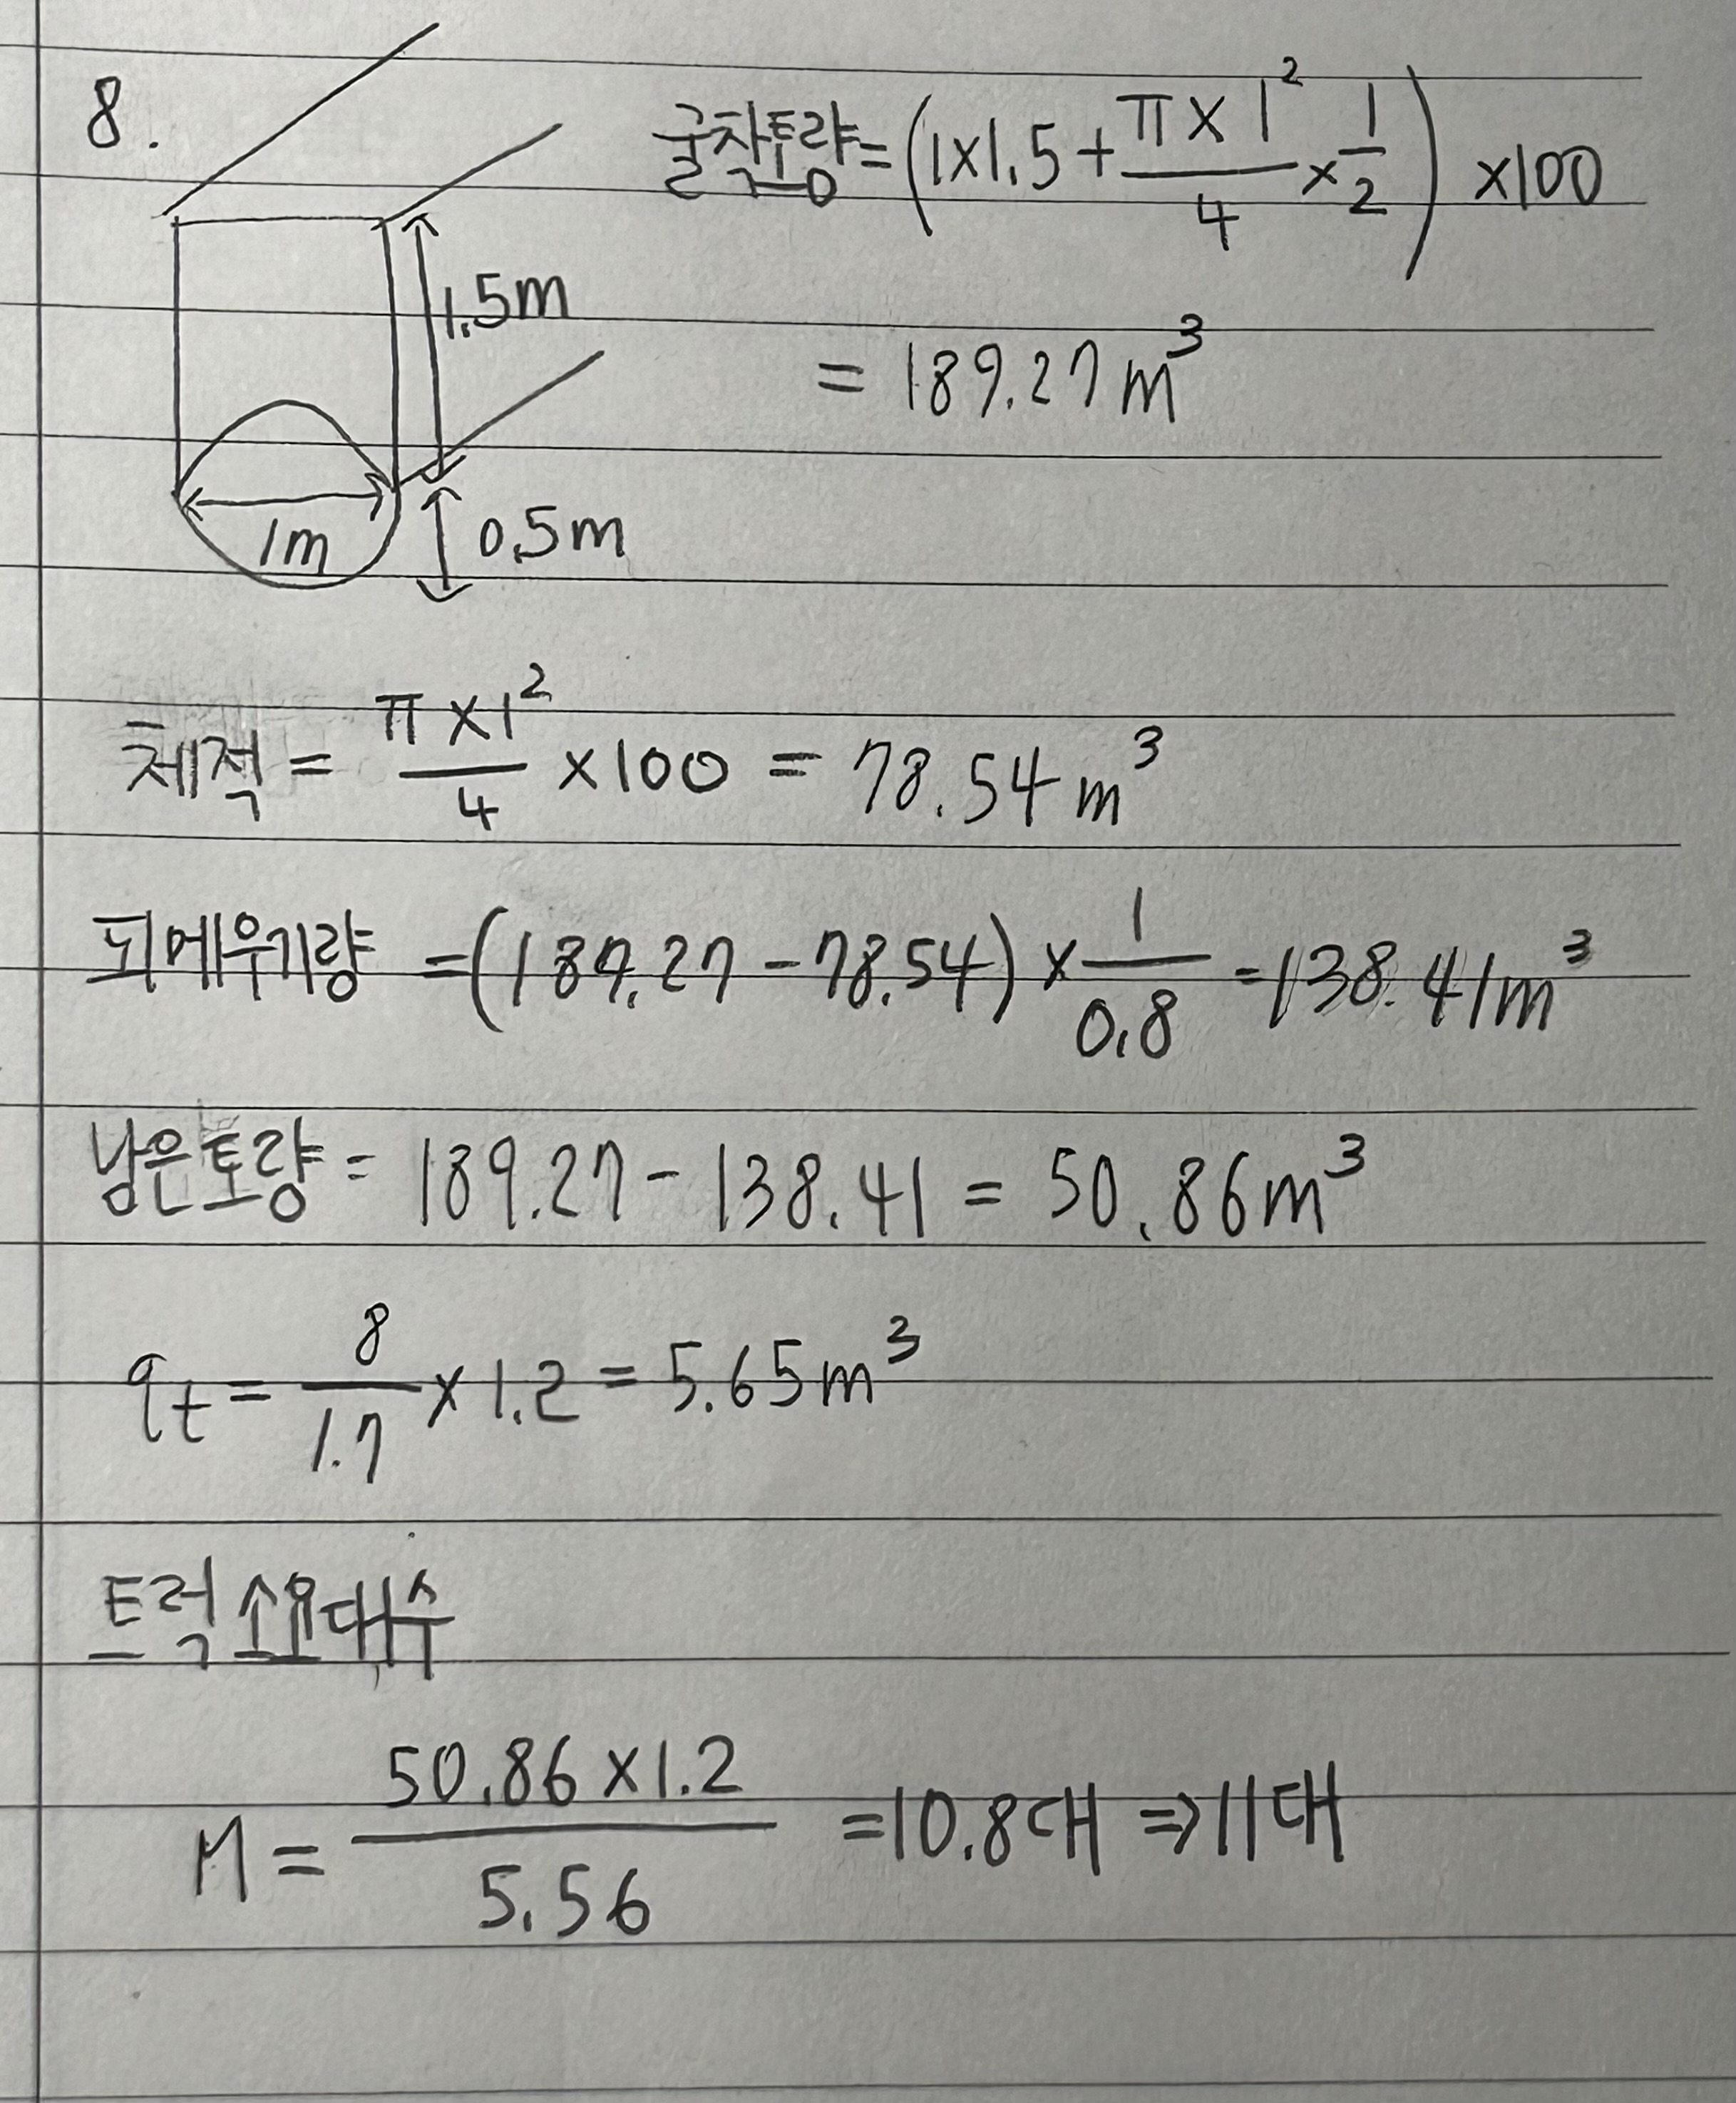 8.
굴착토량 = (1×1.5 + π×1²/4 × 1/2) ×100
1.5m
= 189.27m³
1m
0.5m
체적 = π×1²/4 ×100 = 78.54m³
되메우기량 = (189.27 - 78.54) × 1/0.8 = 138.41m³
남은토량 = 189.27 - 138.41 = 50.86m³
qt = 8/1.7 × 1.2 = 5.65m³
트럭소요대수
M = 50.86×1.2/5.56 = 10.8대 ⇒ 11대